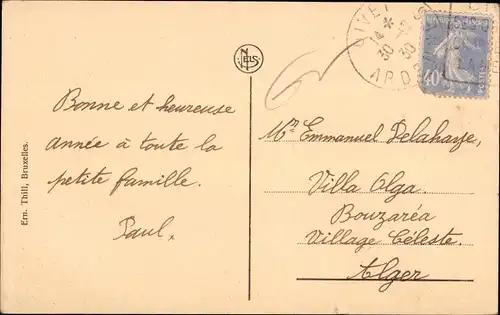 Ern. Thill, Bruxelles.
NELS
Bonne et heureuse
année à toute la
petite famille.
Paul.
GIVET
30
30
ARD
40
POSTES
Mr Emmanuel Delahaye,
Villa Olga.
Bouzaréa
Village Céleste.
Alger